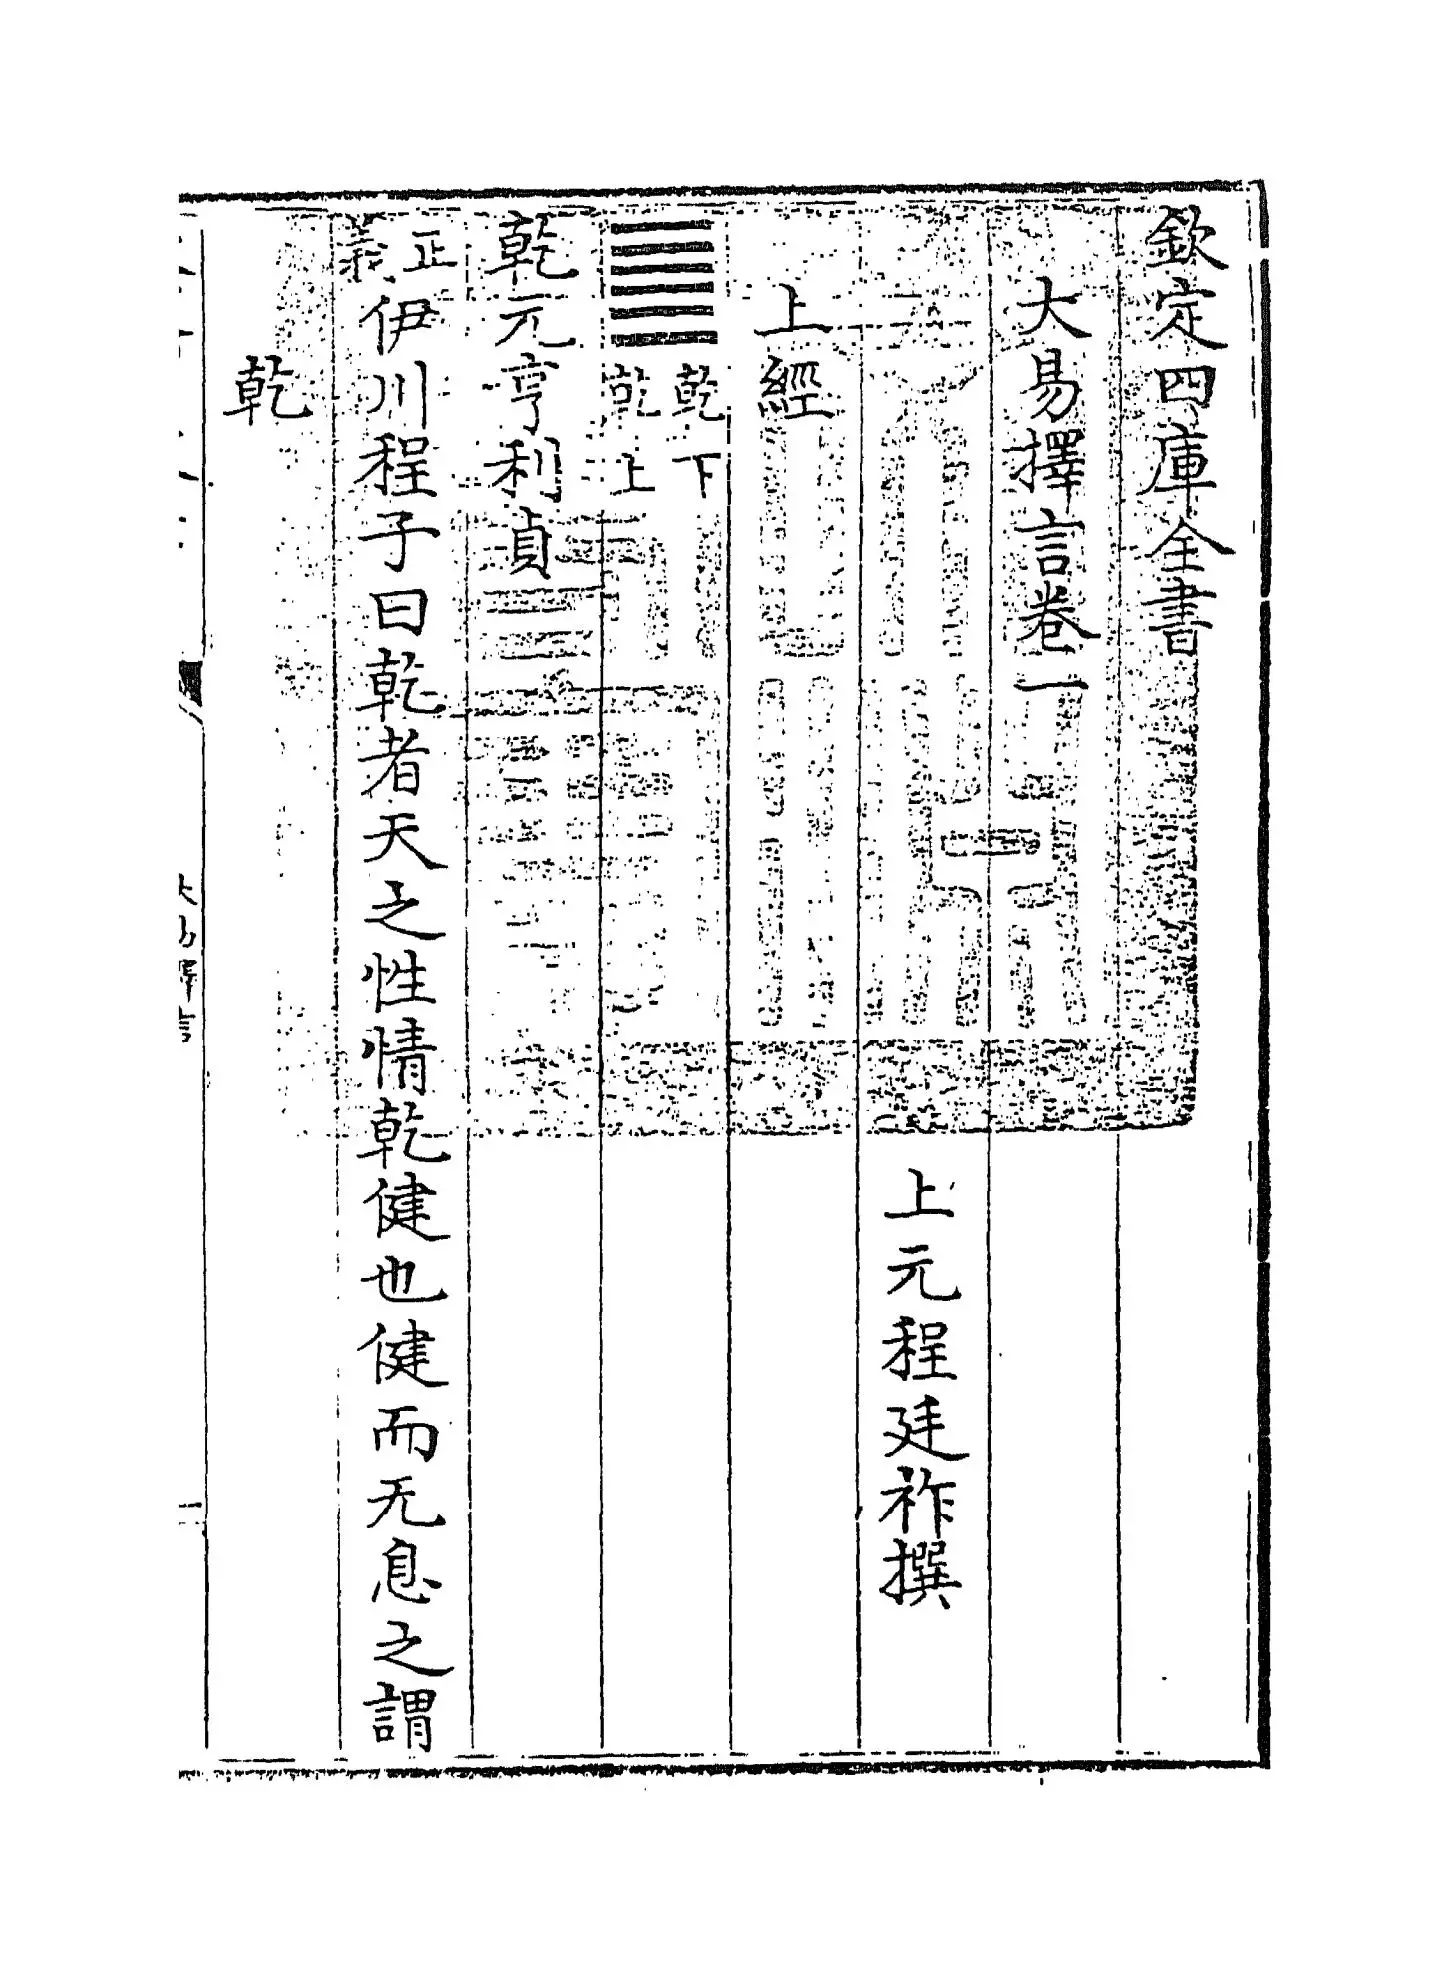 欽定四庫全書
大易擇言卷一
上元程廷祚撰
上經
䷀乾下乾上
乾元亨利貞
正義伊川程子曰乾者天之性情乾健也健而无息之謂
乾